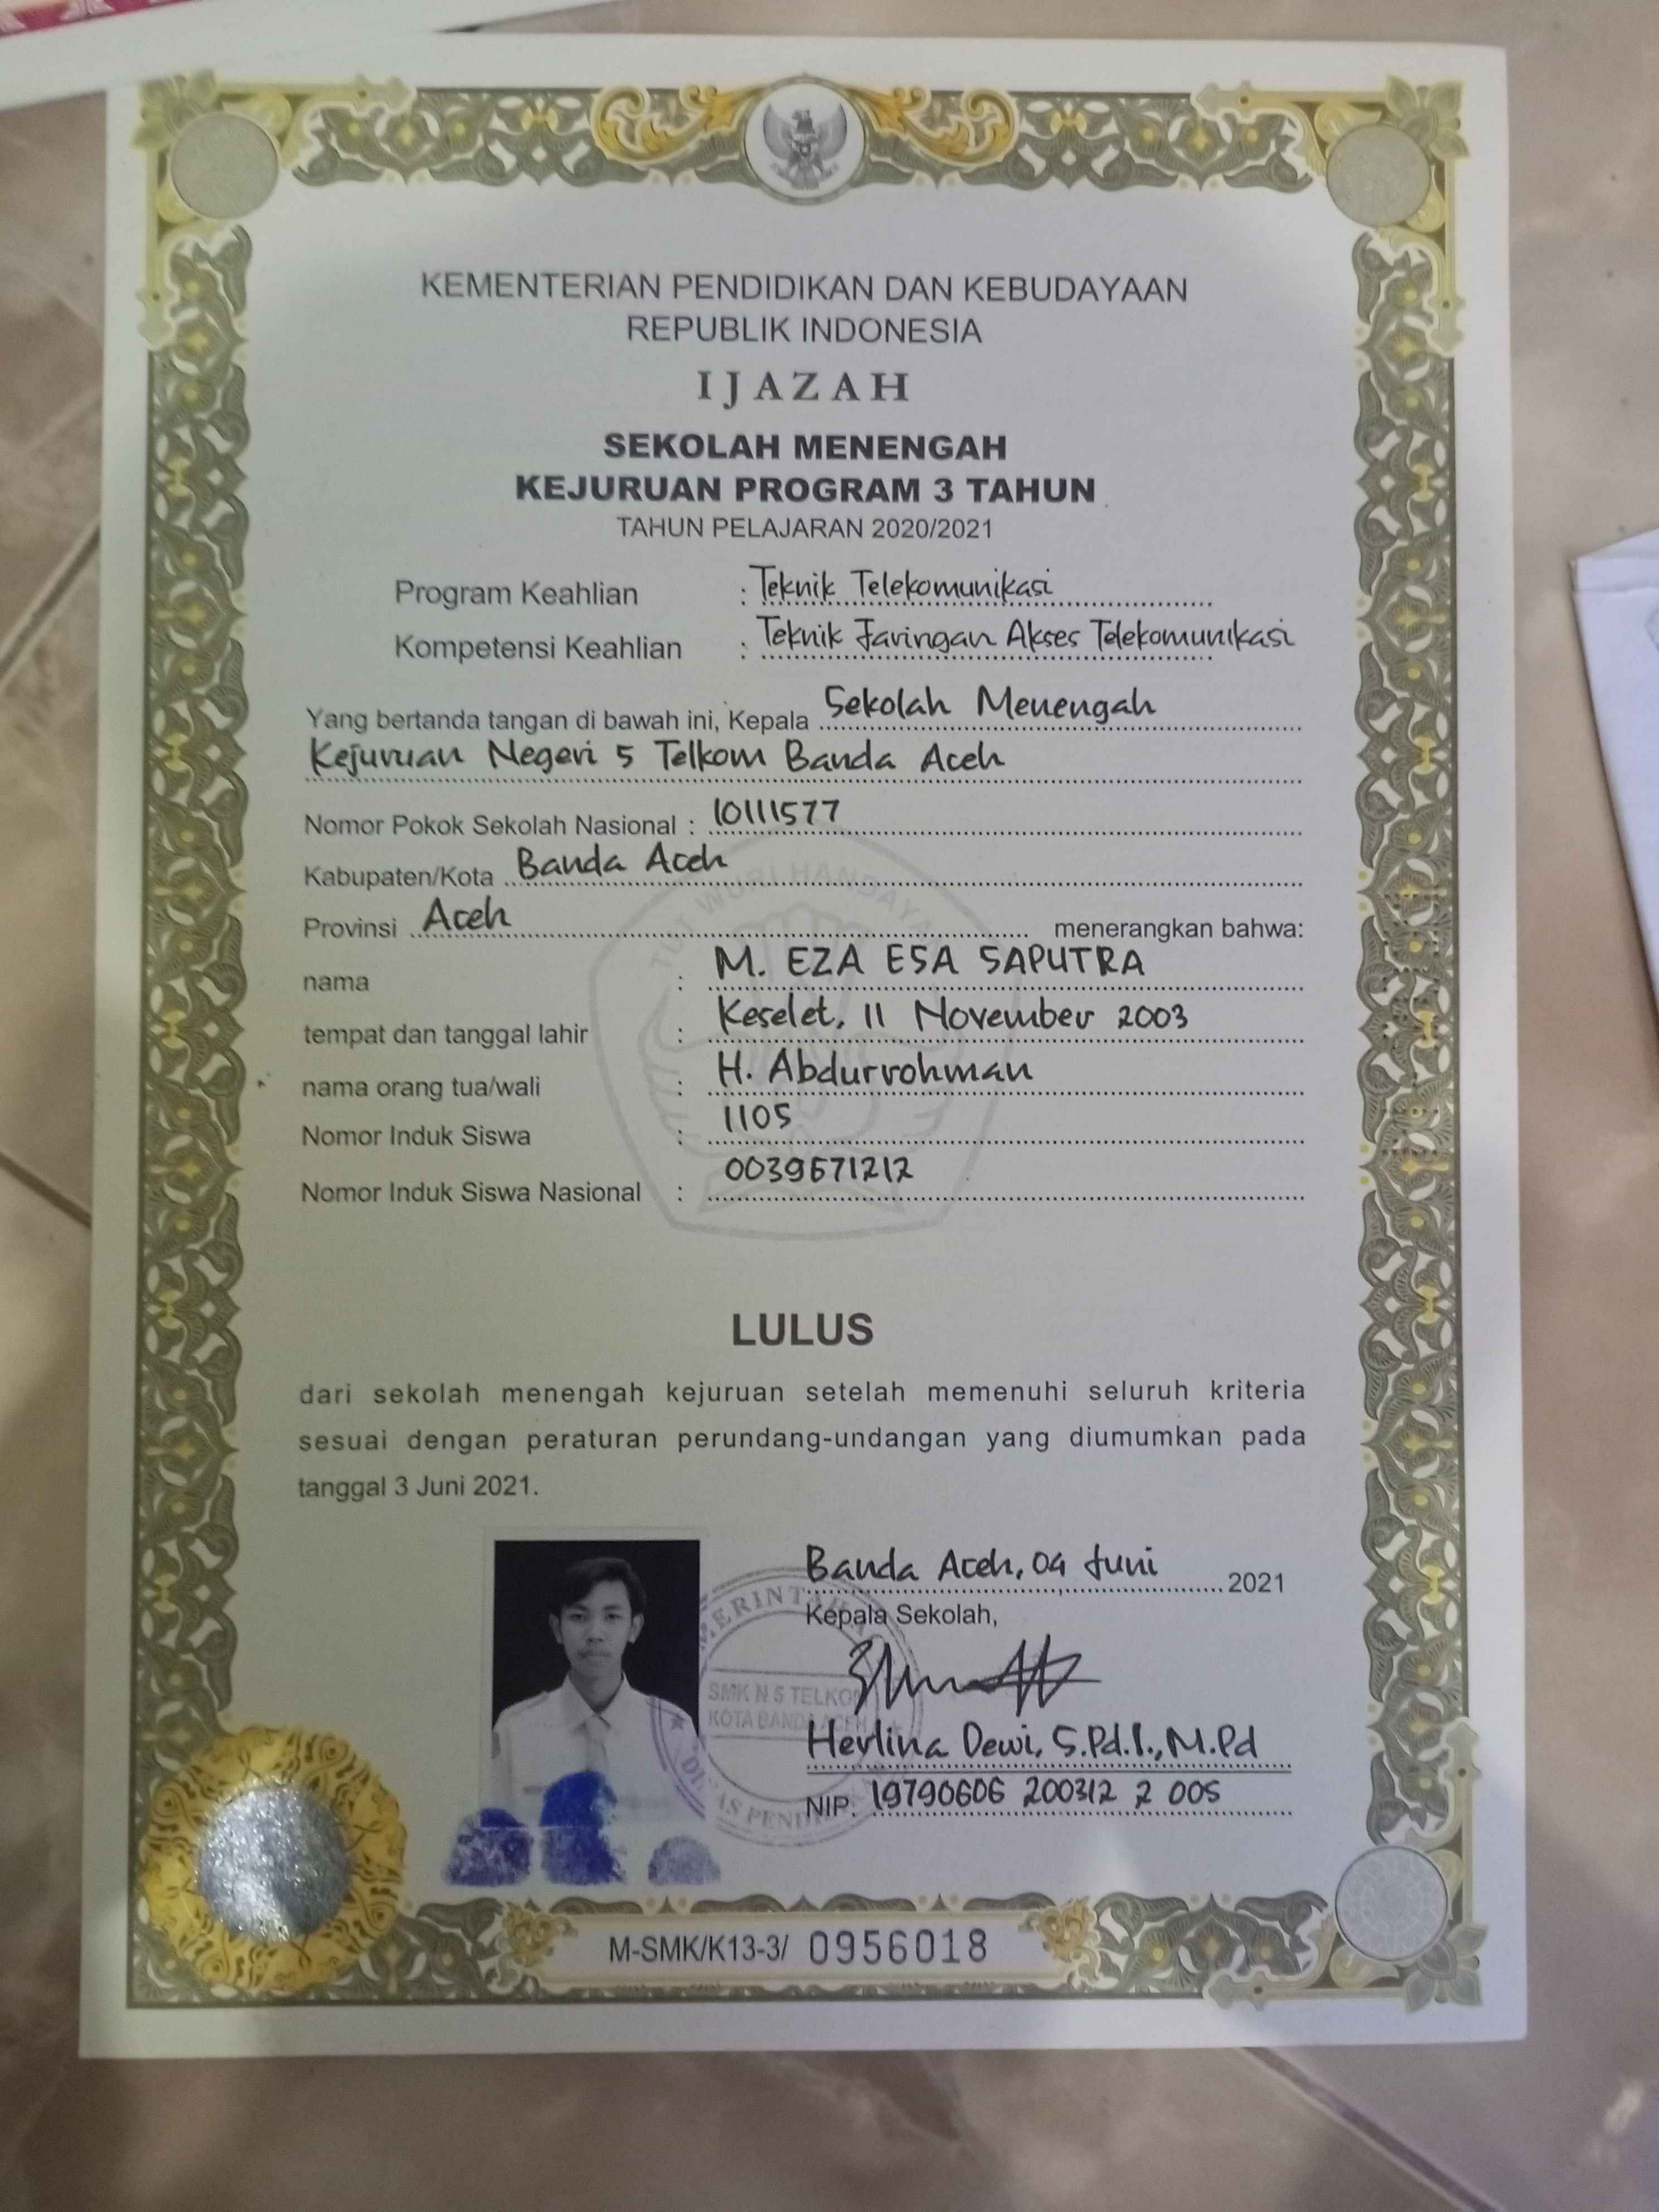 KEMENTERIAN PENDIDIKAN DAN KEBUDAYAAN
REPUBLIK INDONESIA
IJAZAH
SEKOLAH MENENGAH
KEJURUAN PROGRAM 3 TAHUN
TAHUN PELAJARAN 2020/2021
Program Keahlian : Teknik Telekomunikasi
Kompetensi Keahlian : Teknik Jaringan Akses Telekomunikasi
Yang bertanda tangan di bawah ini, Kepala Sekolah Menengah
Kejuruan Negeri 5 Telkom Banda Aceh
Nomor Pokok Sekolah Nasional : 10111577
Kabupaten/Kota Banda Aceh
Provinsi Aceh menerangkan bahwa:
nama : M. EZA ESA SAPUTRA
tempat dan tanggal lahir : Keselet, 11 November 2003
nama orang tua/wali : H. Abdurrohman
Nomor Induk Siswa : 1105
Nomor Induk Siswa Nasional :
TUT WURI HANDAYANI
LULUS
dari sekolah menengah kejuruan setelah memenuhi seluruh kriteria
sesuai dengan peraturan perundang-undangan yang diumumkan pada
tanggal 3 Juni 2021.
Banda Aceh, 04 Juni 2021
Kepala Sekolah,
SMK N 5 TELKOM
KOTA BANDA ACEH
Herlina Dewi, S.Pd.I., M.Pd
NIP. 19790606 200312 2 005
M-SMK/K13-3/ 0956018